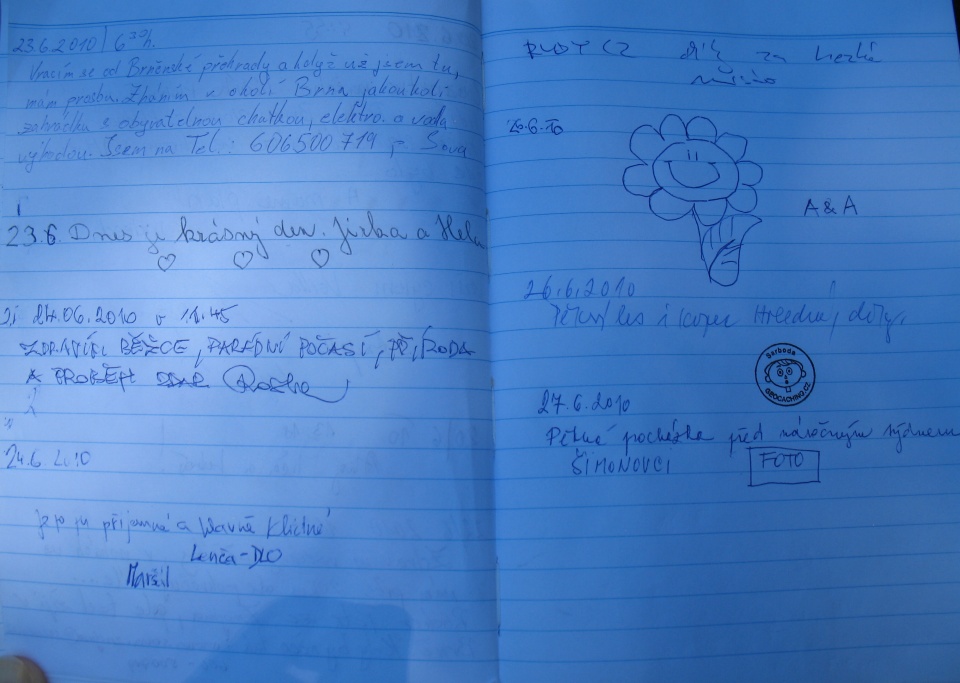 23.6.2010 | 6 30 h.
Vracím se od Brněnské přehrady a když už jsem tu,
mám prosbu. Zháním v okolí Brna jakoukoli
zahrádku s obyvatelnou chatkou, elektro. a voda
výhodou. Jsem na Tel.: 606500719 p. Sova
23.6. Dnes je krásný den. Jirka a Hela
24.06.2010 v 11.45
ZDRAVÍ BĚŽCE, PARÁDNÍ POČASÍ, PŘÍRODA
A PROBĚH
24.6. 2010
příjemné a hlavně klidné
Lenča-DLO
Maršil
RUDY CZ dík za hezké
místo
26.6.10
A & A
26.6.2010
Pěkný les i kopec
Barboda
GEOCACHING.CZ
27.6.2010
Pěkná procházka před náročným týdnem
ŠIMONOVCI FOTO